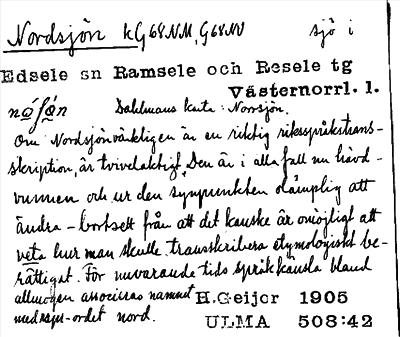 Nordsjön kG68NM, G68NV sjö i
Edsele sn Ramsele och Resele tg
Västernorrl. l.
Dahlmans karta: Norrsjön.
Om Nordsjön verkligen är en riktig riksspråkstrans-
skription, är tvivelaktigt. Den är i alla fall nu hävd-
vunnen och ur den synpunkten olämplig att
ändra – bortsett från att det kanske är omöjligt att
veta hur man skulle transskribera etymologiskt be-
rättigat. För nuvarande tids språkkänsla bland
allmogen associeras namnet H.Geijer 1905
med spr-ordet nord. ULMA 508:42